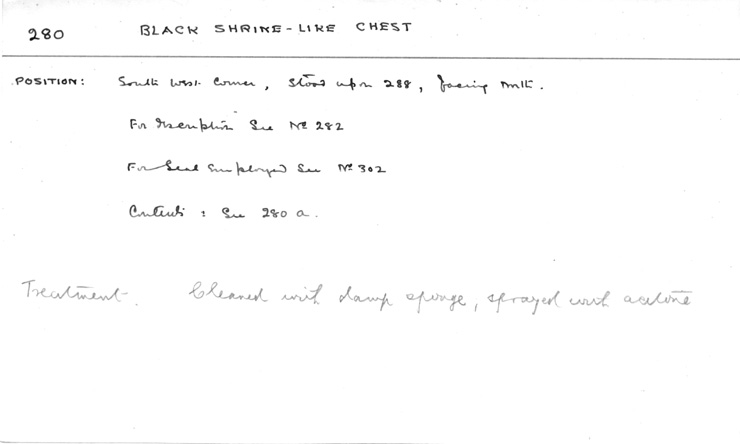 280 BLACK SHRINE-LIKE CHEST
POSITION: South West Corner, stood upon 288, facing North.
For description See No 282
For Seal Employed See No 302
Contents: See 280 a.
Treatment. Cleaned with damp sponge, sprayed with acetone